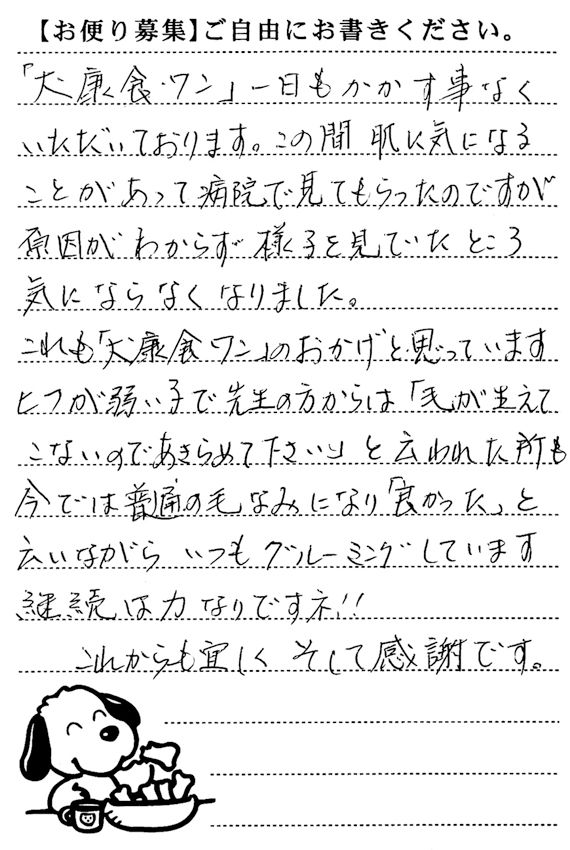 【お便り募集】ご自由にお書きください。
「犬康食・ワン」一日もかかす事なく
いただいております。この間 肌に気になる
ことがあって病院で見てもらったのですが
原因がわからず様子を見ていたところ
気にならなくなりました。
これも「犬康食ワン」のおかげと思っています
ヒフが弱い子で先生の方からは「毛が生えて
こないのであきらめて下さい」と云われた所も
今では普通の毛なみになり「良かった」と
云いながら いつもグルーミングしています
継続は力なりですネ!!
これからも宜しく そして感謝です。